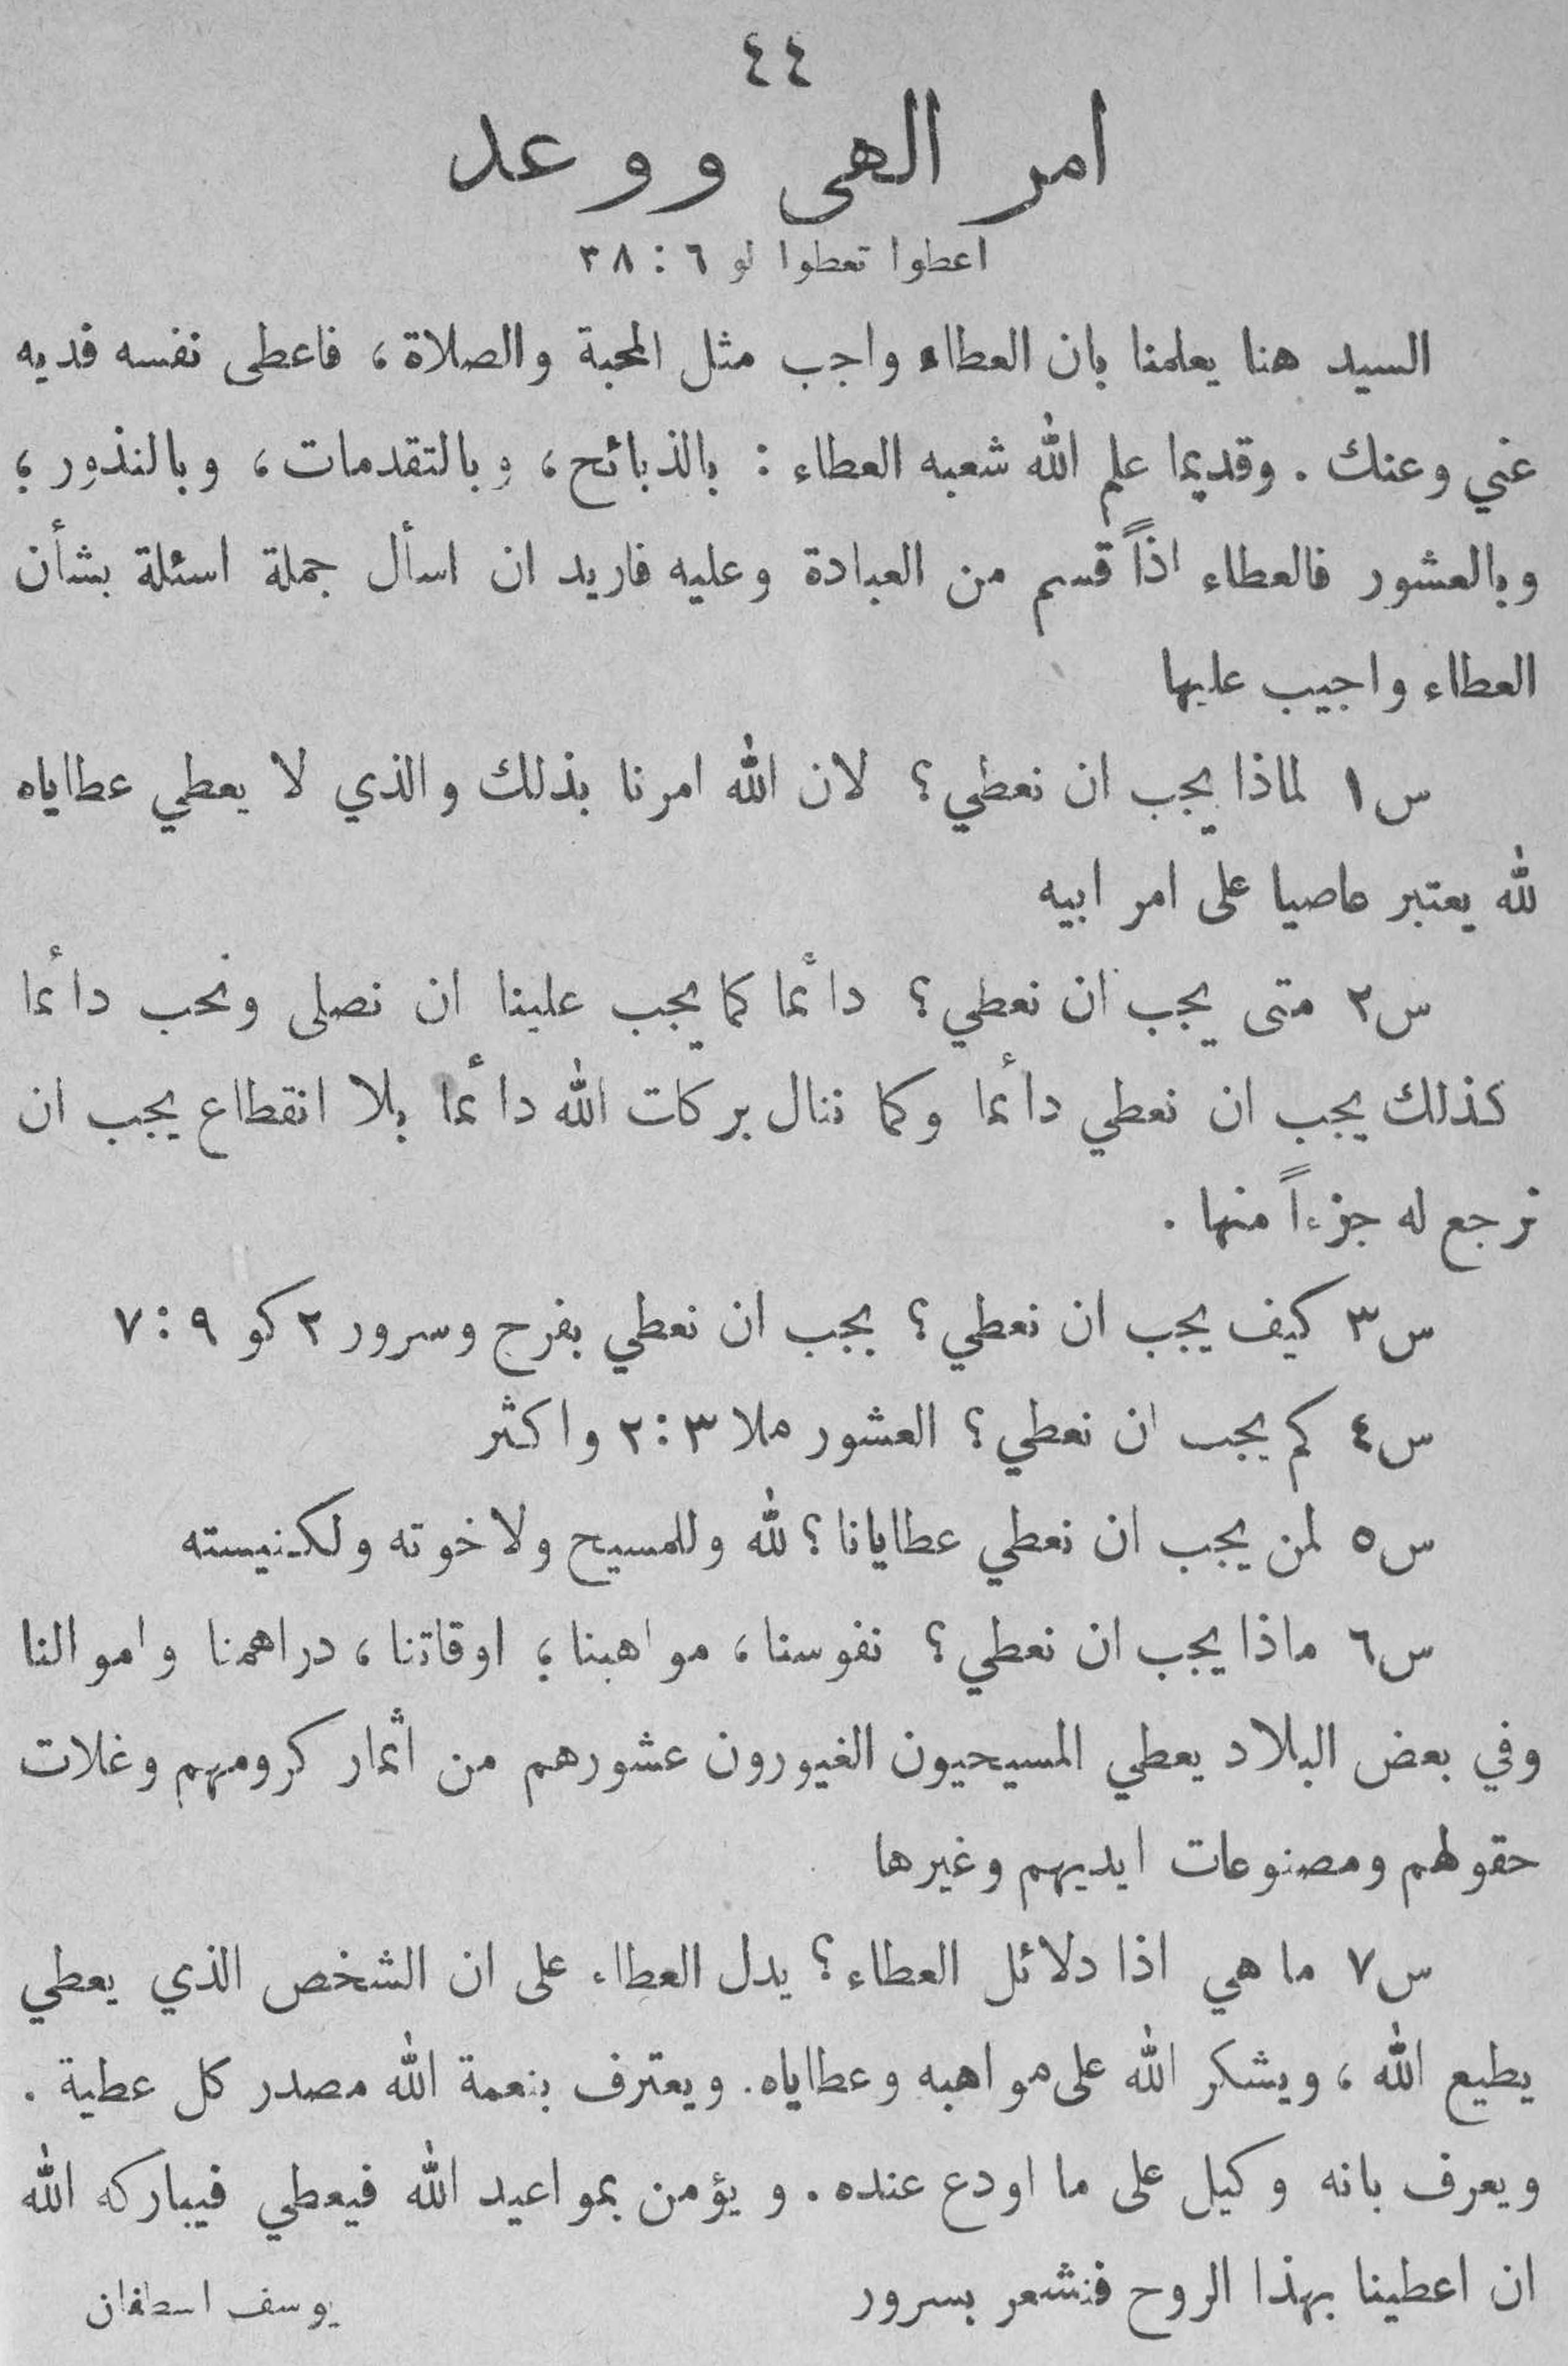 ٤٤
امر الهي ووعد
اعطوا تعطوا لو ٦ : ٣٨
السيد هنا يعلمنا بان العطاء واجب مثل المحبة والصلاة ، فاعطى نفسه فديه
عني وعنك . وقديما علم الله شعبه العطاء : بالذبائح ، وبالتقدمات ، وبالنذور ،
وبالعشور فالعطاء اذاً قسم من العبادة وعليه فاريد ان اسأل جملة اسئلة بشأن
العطاء واجيب عليها
س١ لماذا يجب ان نعطي ؟ لان الله امرنا بذلك والذي لا يعطي عطاياه
لله يعتبر عاصيا على امر ابيه
س٢ متى يجب ان نعطي ؟ دائما كما يجب علينا ان نصلى ونحب دائما
كذلك يجب ان نعطي دائما وكما ننال بركات الله دائما بلا انقطاع يجب ان
نرجع له جزءاً منها .
س٣ كيف يجب ان نعطي ؟ يجب ان نعطي بفرح وسرور ٢ كو ٩ : ٧
س٤ كم يجب ان نعطي ؟ العشور ملا ٣ : ٢ واكثر
س٥ لمن يجب ان نعطي عطايانا ؟ لله وللمسيح ولاخوته ولكنيسته
س٦ ماذا يجب ان نعطي ؟ نفوسنا ، مواهبنا ، اوقاتنا ، دراهمنا واموالنا
وفي بعض البلاد يعطي المسيحيون الغيورون عشورهم من اثمار كرومهم وغلات
حقولهم ومصنوعات ايديهم وغيرها
س٧ ما هي اذا دلائل العطاء ؟ يدل العطاء على ان الشخص الذي يعطي
يطيع الله ، ويشكر الله على مواهبه وعطاياه . ويعترف بنعمة الله مصدر كل عطية .
ويعرف بانه وكيل على ما اودع عنده . ويؤمن بمواعيد الله فيعطي فيباركه الله
ان اعطينا بهذا الروح فنشعر بسرور
يوسف اسطفان